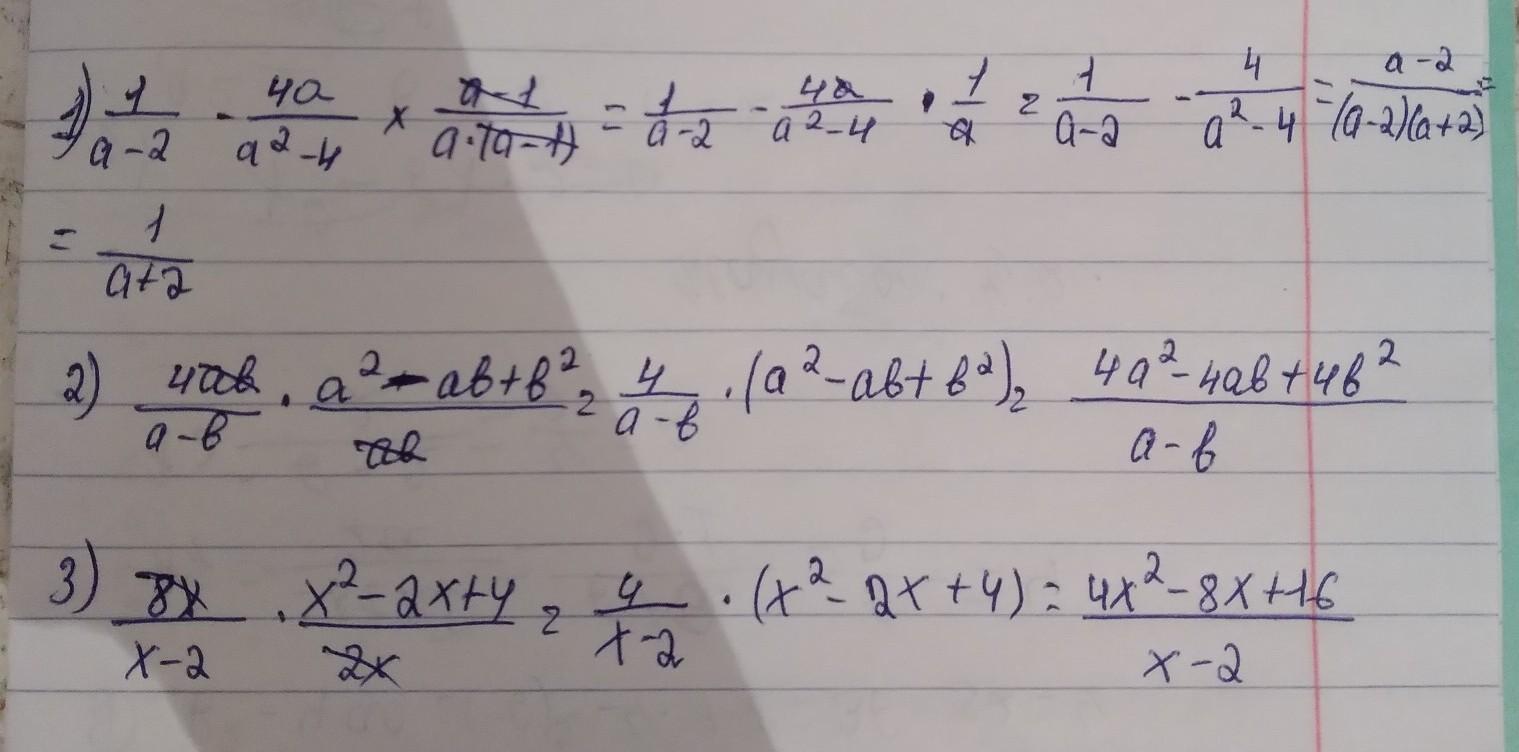 1) 1/(a-2) - 4a/(a²-4) × (a-1)/(a·(a-1)) = 1/(a-2) - 4a/(a²-4) · 1/a = 1/(a-2) - 4/(a²-4) = (a-2)/((a-2)(a+2)) =
= 1/(a+2)
2) 4ab/(a-b) · (a²-ab+b²)/ab = 4/(a-b) · (a²-ab+b²) = (4a²-4ab+4b²)/(a-b)
3) 8x/(x-2) · (x²-2x+4)/2x = 4/(x-2) · (x²-2x+4) = (4x²-8x+16)/(x-2)